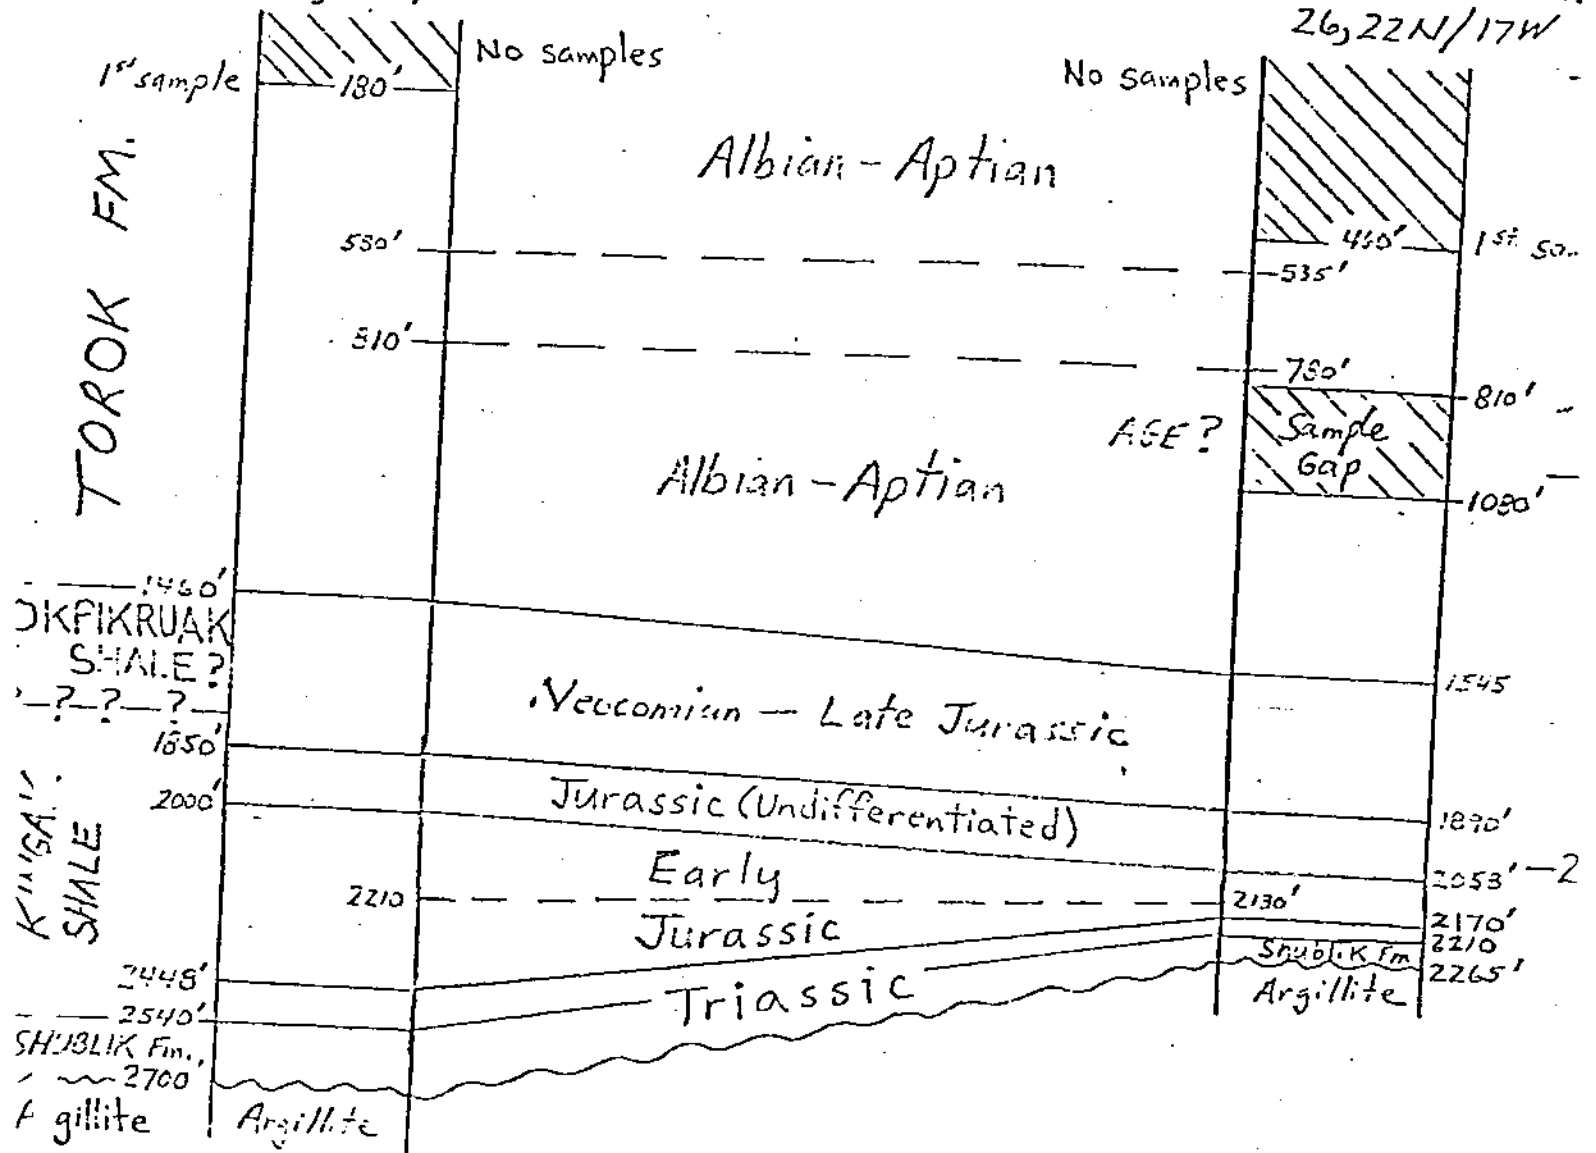 26, 22N/17W
No samples
1st sample
180'
No samples
Albian - Aptian
TOROK FM.
460'
1st
530'
535'
810'
780'
810'
AGE?
Sample
Gap
Albian - Aptian
1080'
1460'
OKPIKRUAK
SHALE?
? ? ?
1545
Neocomian - Late Jurassic
1850'
Jurassic (Undifferentiated)
2000'
1890'
SHALE
Early
2053' - 2
2210
2130'
Jurassic
2170'
2210
Shublik Fm
2448'
2265'
Triassic
Argillite
2540'
SHUBLIK Fm.
2700'
Argillite
Argillite